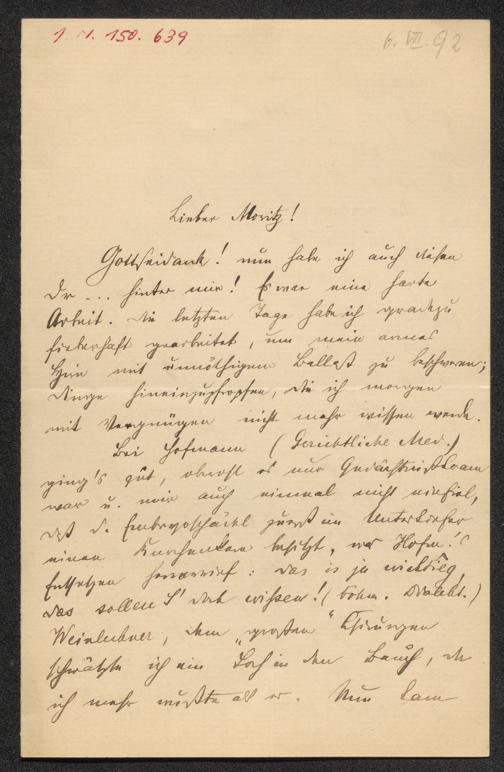 I. N. 158.639
6. VII. 92
Lieber Moritz!
Gottseidank! nun habe ich auch diesen
Dr ... hinter mir! Es war eine harte
Arbeit. Die letzten Tage habe ich geradezu
fieberhaft gearbeitet, um mein armes
Hirn mit unnöthigem Ballast zu beschweren;
Dinge hineinzupfropfen, die ich morgen
mit Vergnügen nicht mehr wissen werde.
Bei Hofmann (Gerichtliche Med.)
ging's gut, obwohl es nur Gedächtnißkram
war u. mir auch einmal nicht einfiel,
daß d. Embryoschädel zuerst im Unterkiefer
einen Knochenkern besitzt, was Hofm.'s
Entsetzen hervorrief: das is ja wichtieg,
das sollen S' doch wissen! (böhm. Dialekt.)
Weinlechner, dem „großen" Chirurgen
schwätzte ich ein Loch in den Bauch, da
ich mehr wußte als er. Nun kam